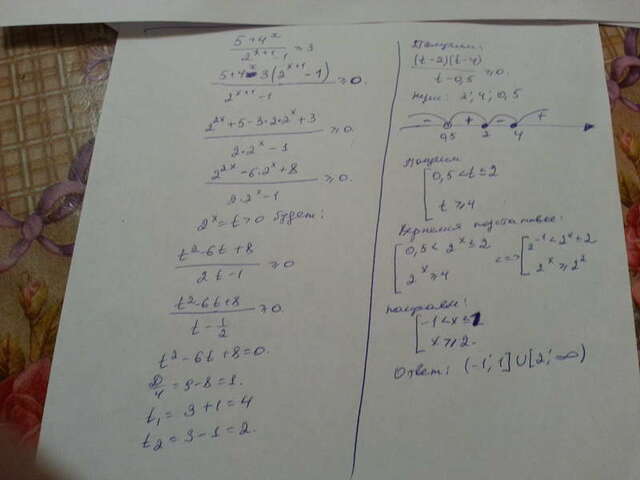 5+4^x / 2^(x+1)-1 ≥ 3
5+4^x-3(2^(x+1)-1) / 2^(x+1)-1 ≥0.
2^(2x)+5-3·2·2^x+3 / 2·2^x-1 ≥0.
2^(2x)-6·2^x+8 / 2·2^x-1 ≥0.
2^x=t>0 будет:
t²-6t+8 / 2t-1 ≥0
t²-6t+8 / t-1/2 ≥0.
t²-6t+8=0.
D/4=9-8=1.
t₁=3+1=4
t₂=3-1=2.
Получим:
(t-2)(t-4) / t-0,5 ≥0.
Нули: 2; 4; 0,5
- + - +
0,5 2 4
Получим
[0,5<t≤2
t≥4
Вернемся подставив:
[0,5<2^x≤2 <=> [2^(-1)<2^x≤2
2^x≥4 2^x≥2²
получаем:
[-1<x≤1
x≥2.
Ответ: (-1;1]∪[2;∞)